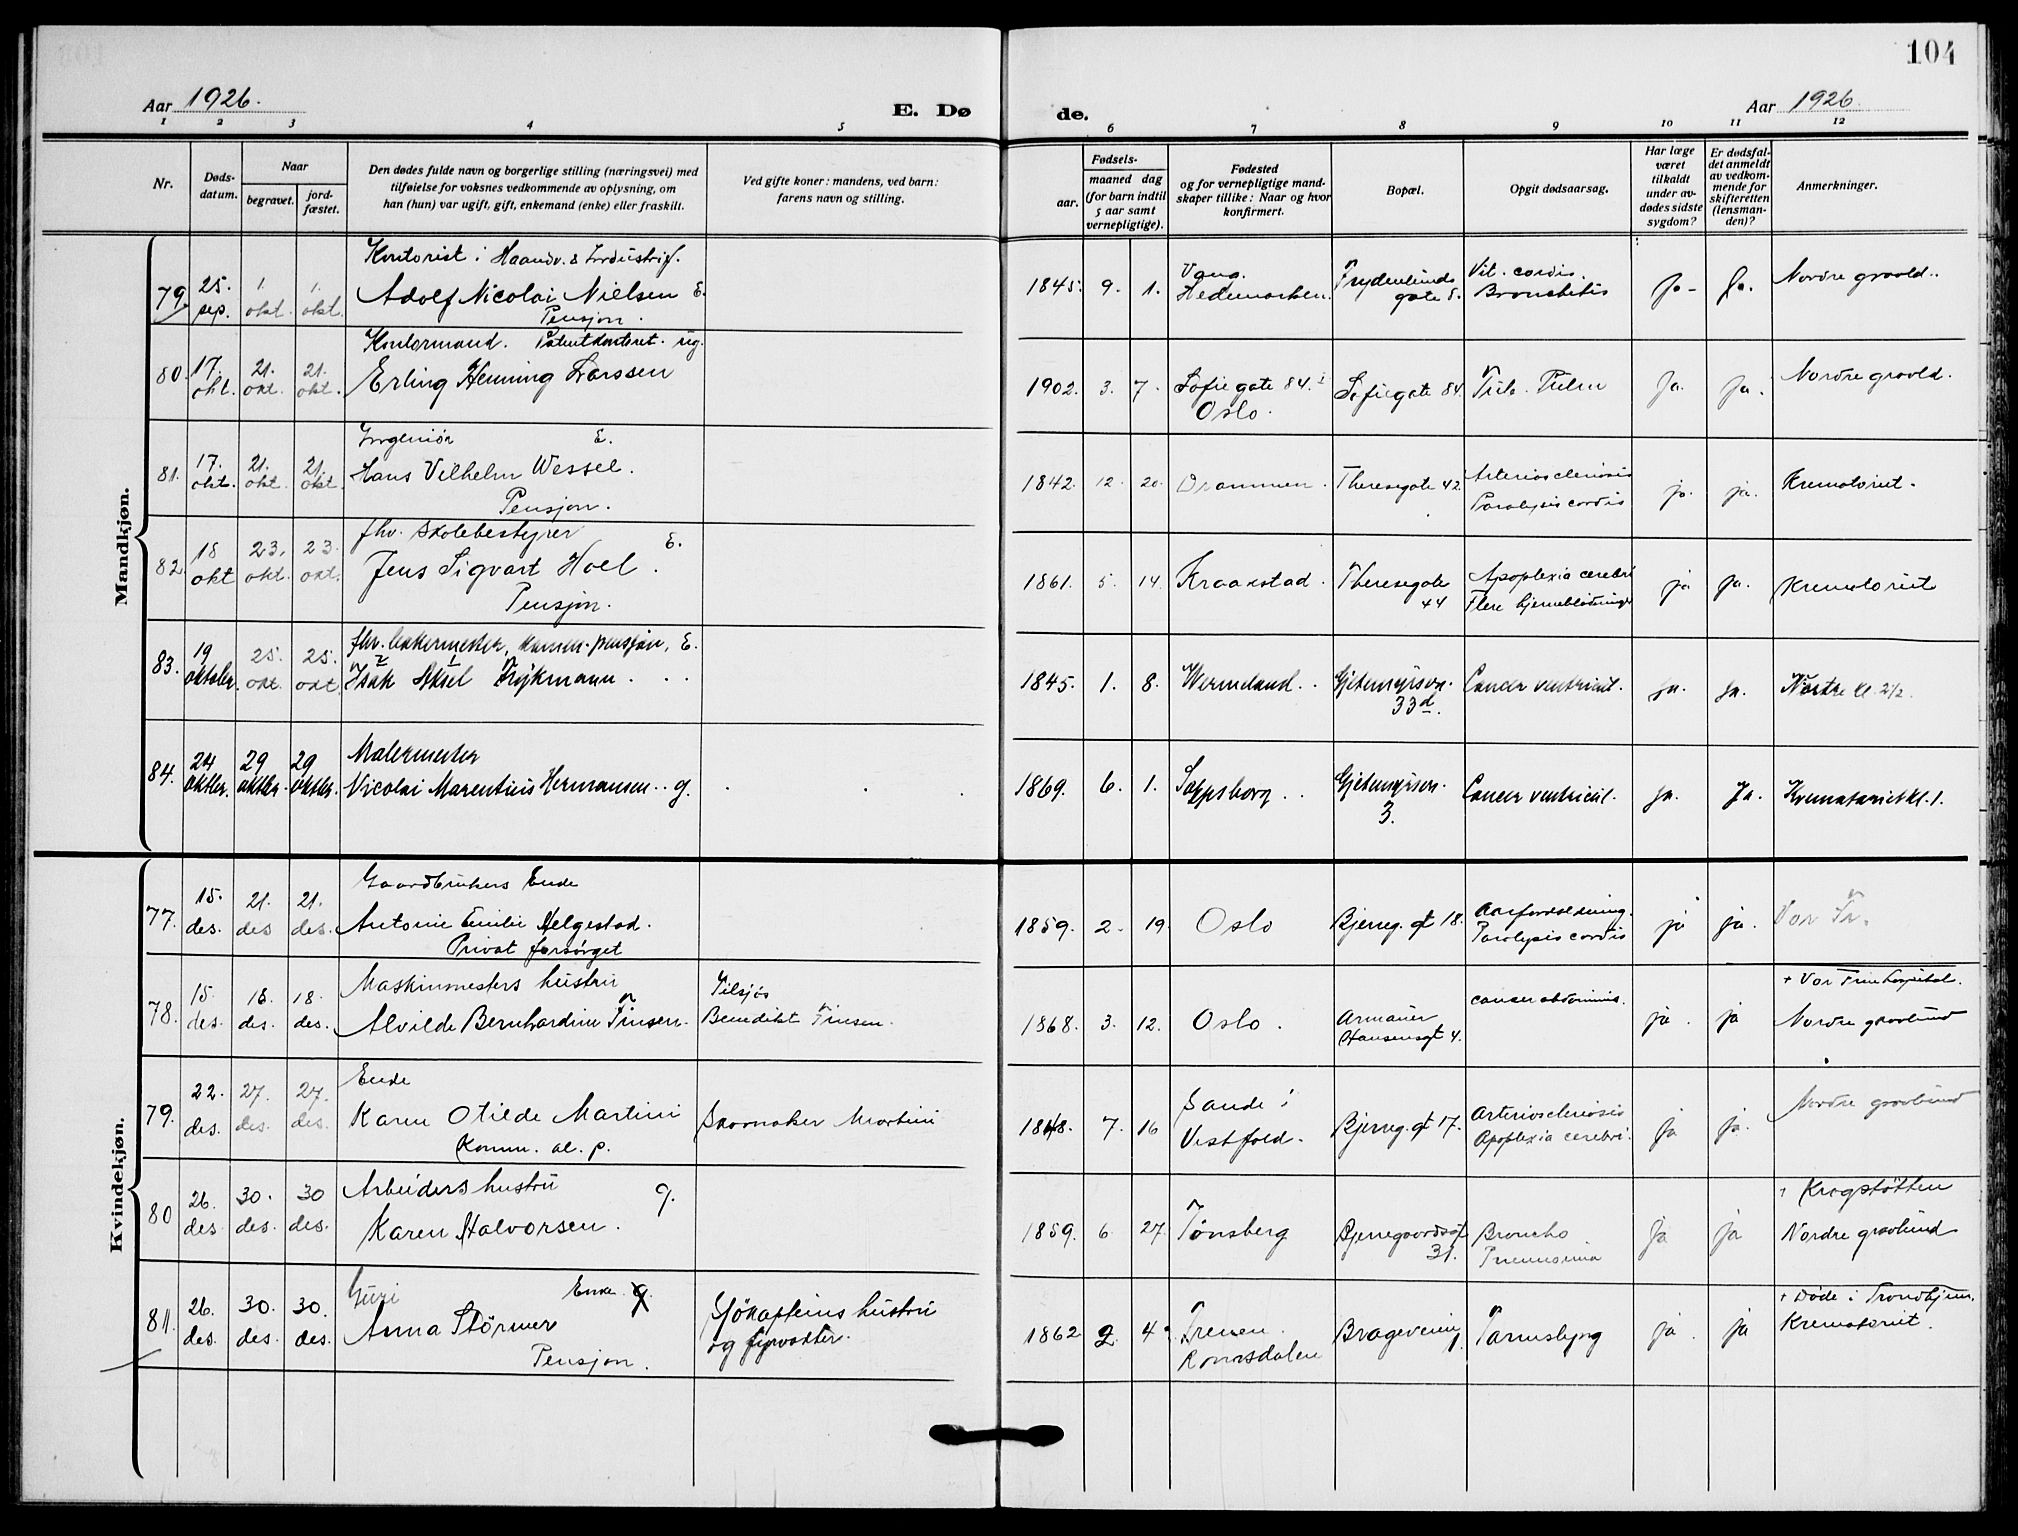 104
Aar 1926.
E. Dø
de.
Aar 1926
1 2 3 4 5 6 7 8 9 10 11 12
Nr.
Døds-
datum.
Naar
begravet.
jord-
fæstet.
Den dødes fulde navn og borgerlige stilling (næringsvei) med
tilføielse for voksnes vedkommende av oplysning, om
han (hun) var ugift, gift, enkemand (enke) eller fraskilt.
Ved gifte koner: mandens, ved barn:
farens navn og stilling.
Fødsels-
aar.
maaned dag
(for barn indtil
5 aar samt
vernepligtige).
Fødested
og for vernepligtige mand-
skaper tillike: Naar og hvor
konfirmert.
Bopæl.
Opgit dødsaarsag.
Har læge
været
tilkaldt
under av-
dødes sidste
sygdom?
Er dødsfal-
det anmeldt
av vedkom-
mende for
skifteretten
(lensman-
den)?
Anmerkninger.
Mandkjøn.
Kontorist i Haandv. & Industrif.
79. 25. sep. 1. okt. 1. okt. Adolf Nicolai Nielsen E.
Pensjon.
1845. 9. 1. Vang. Hedemarken. Frydenlunds gate 8. Vit. cordis. Bronchitis Ja. Ja. Nordre gravld.
Kontormand. Patentkontoret. ug.
80. 17. okt. 21. okt. 21. okt. Erling Henning Larssen
1902. 3. 7. Sofiegate 84. Oslo. Sofiegate 84. Tub. Pulm Ja. Ja. Nordre gravld.
Ingeniør E.
81. 17. okt. 21. okt. 21. okt. Hans Vilhelm Wessel.
Pensjon.
1842. 12. 20. Drammen. Theresegate 42. Arteriosclerosis Paralysis cordis ja. ja. Krematoriet.
fhv. skolebestyrer E.
82. 18 okt 23. okt. 23. okt. Jens Sigvart Hoel.
Pensjon.
1861. 5. 14. Kraakstad. Theresegate 44 Apoplexia cerebri Flere hjerneblødninger ja ja. Krematoriet
fhv. bakermester, komm. pensjon, E.
83. 19 oktober. 25. okt. 25. okt Isak Aksel Frykmann
1845. 1. 8. Wermeland. Gjetemyrsvn. 33d. Cancer ventricul. ja. ja. Nordre kl. 2½.
Malermester
84. 24 oktbr. 29 oktbr. 29 oktbr. Nicolai Marentius Hermansen. g.
1869. 6. 1. Sarpsborg. Gjetemyrsvn. 3. Cancer ventricul. ja. Ja. Krematoriet kl. 1.
Kvindekjøn.
Gaardbrukers Enke
77. 15. des. 21. des 21. des. Antonie Emilie Helgestad.
Privat forsørget
1859. 2. 19. Oslo Bjerreg. gt 18. Aareforkalkning. Paralysis cordis ja ja. Vor Fr.
Maskinmesters hustru
78. 15. des. 18. des. 18. des. Alvilde Bernhardine Tinsen. Benedikt Tinsen.
1868. 3. 12. Oslo. Armauer Hansensgt 4. cancer abdominis. ja. ja + Vor Frue hospital. Nordre gravlund
Enke
79. 22. des. 27. des. 27. des. Karen Otilde Martini Skomaker Martini
Komm. al. p.
1848. 7. 16 Sande i Vestfold. Bjerreg. gt 17. Arteriosclerosis Apoplexia cerebri. ja ja. Nordre gravlund
Arbeiders hustru g.
80 26. des 30. des. 30 des. Karen Halvorsen.
1859. 6 27. Tønsberg Bjerregaardsgt 31. Broncho Pneumonia ja ja + Krogstøtten Nordre gravlund
Guri Enke g.
81. 26. des. 30. des. 30. des. Anna Størmer Sjøkapteins hustru
Pensjon.
1862 2. 4. Romsdalen Brageveien 1. Tarmslyng ja. ja + Døde i Trondhjem. Krematoriet.